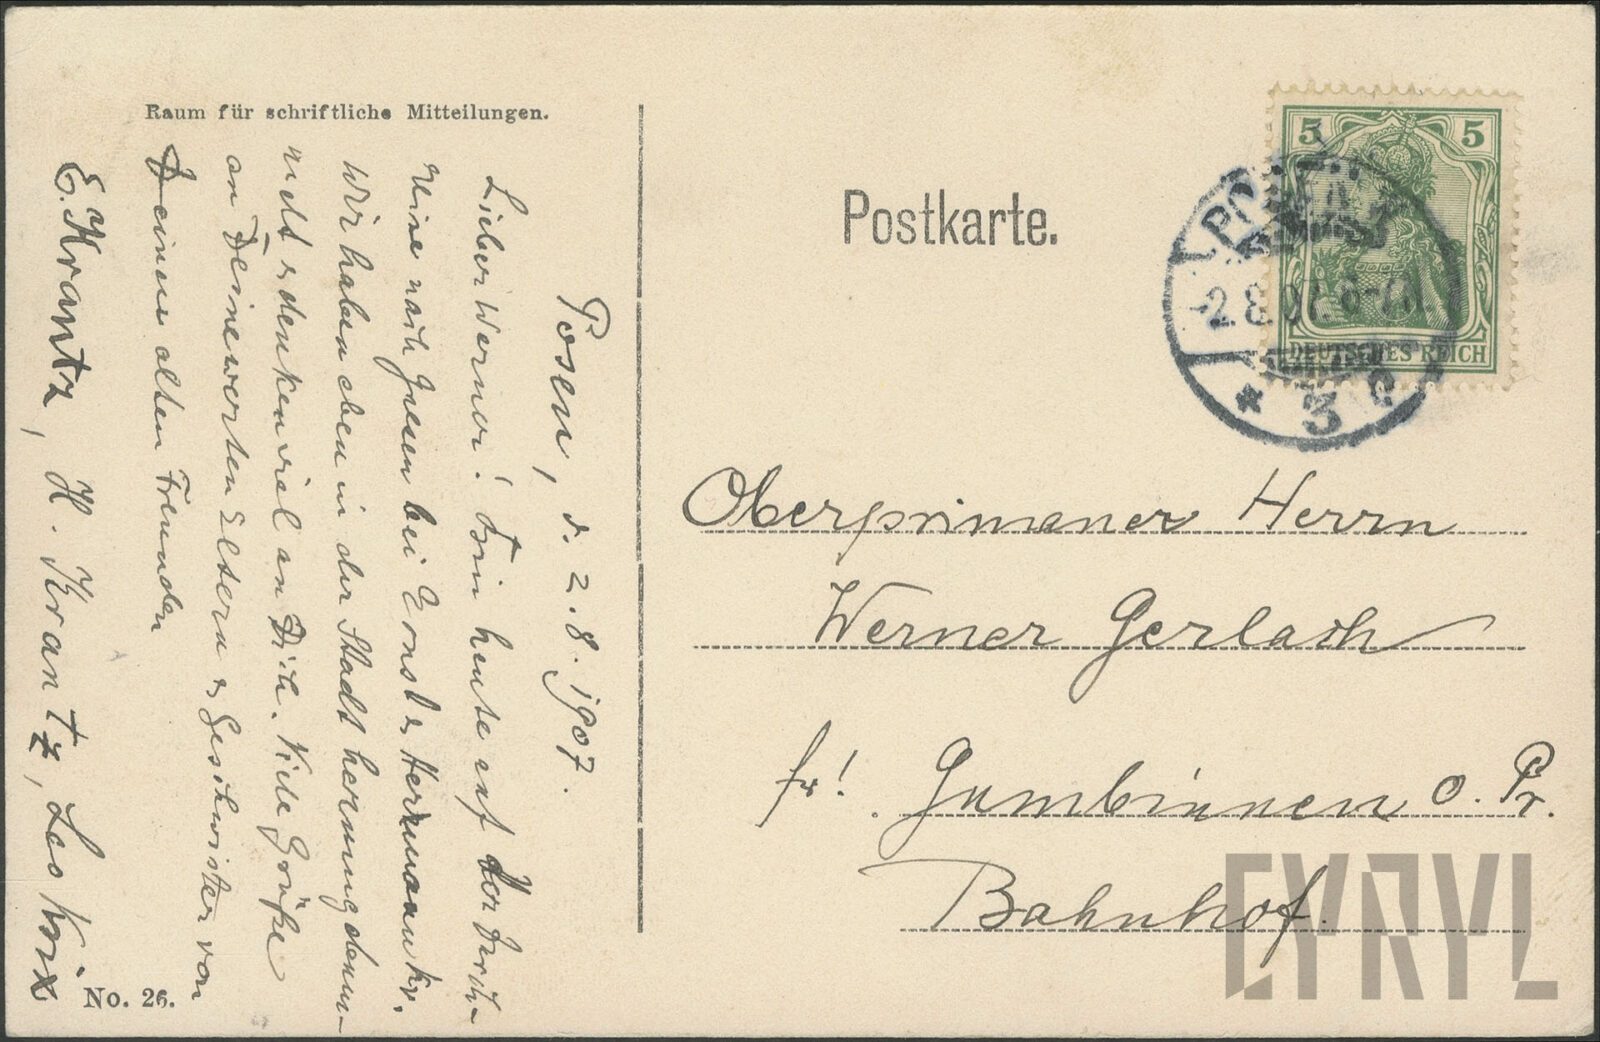 Raum für schriftliche Mitteilungen.
Posen, d. 2.8.1907.
Lieber Werner! Bin heute auf der Durch-
reise nach Gnesen bei Ernst u. Hermann Kr.
Wir haben eben in der Stadt herumgebum-
melt u. denken viel an Dich. Viele Grüße
an Deine werten Eltern u. Geschwister von
Deinen alten Freunden
E. Krantz, H. Krantz, Leo
No. 26.
Postkarte.
5 5
DEUTSCHES REICH
POSEN
2.8.07. 6-7N
* 3 e
Oberprimaner Herrn
Werner Gerlach
fr! Gumbinnen O. Pr.
Bahnhof.
CYRYL